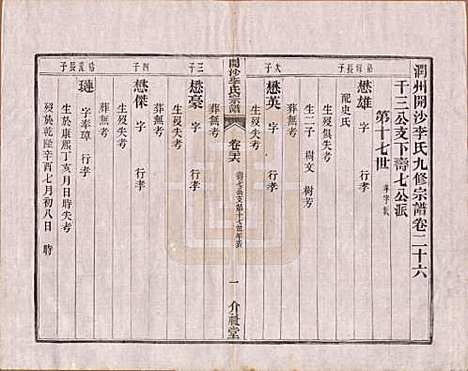 潤州開沙李氏九修宗譜卷二十六
千三公支下壽七公派
第十七世
長子
懋雄 字 行孝
配史氏
生歿俱失考
葬無考
次子
懋英 字 行孝
生二子 樹文 樹虎
生歿失考
葬無考
開沙李氏宗譜
卷二十六
一 介祉堂
三子
懋毫 字 行孝
生歿失考
葬無考
四子
懋傑 字 行孝
生歿失考
葬無考
長子
璉 字奉璋 行孝
生於康熙丁亥月日時失考
歿於乾隆辛酉七月初八日 時